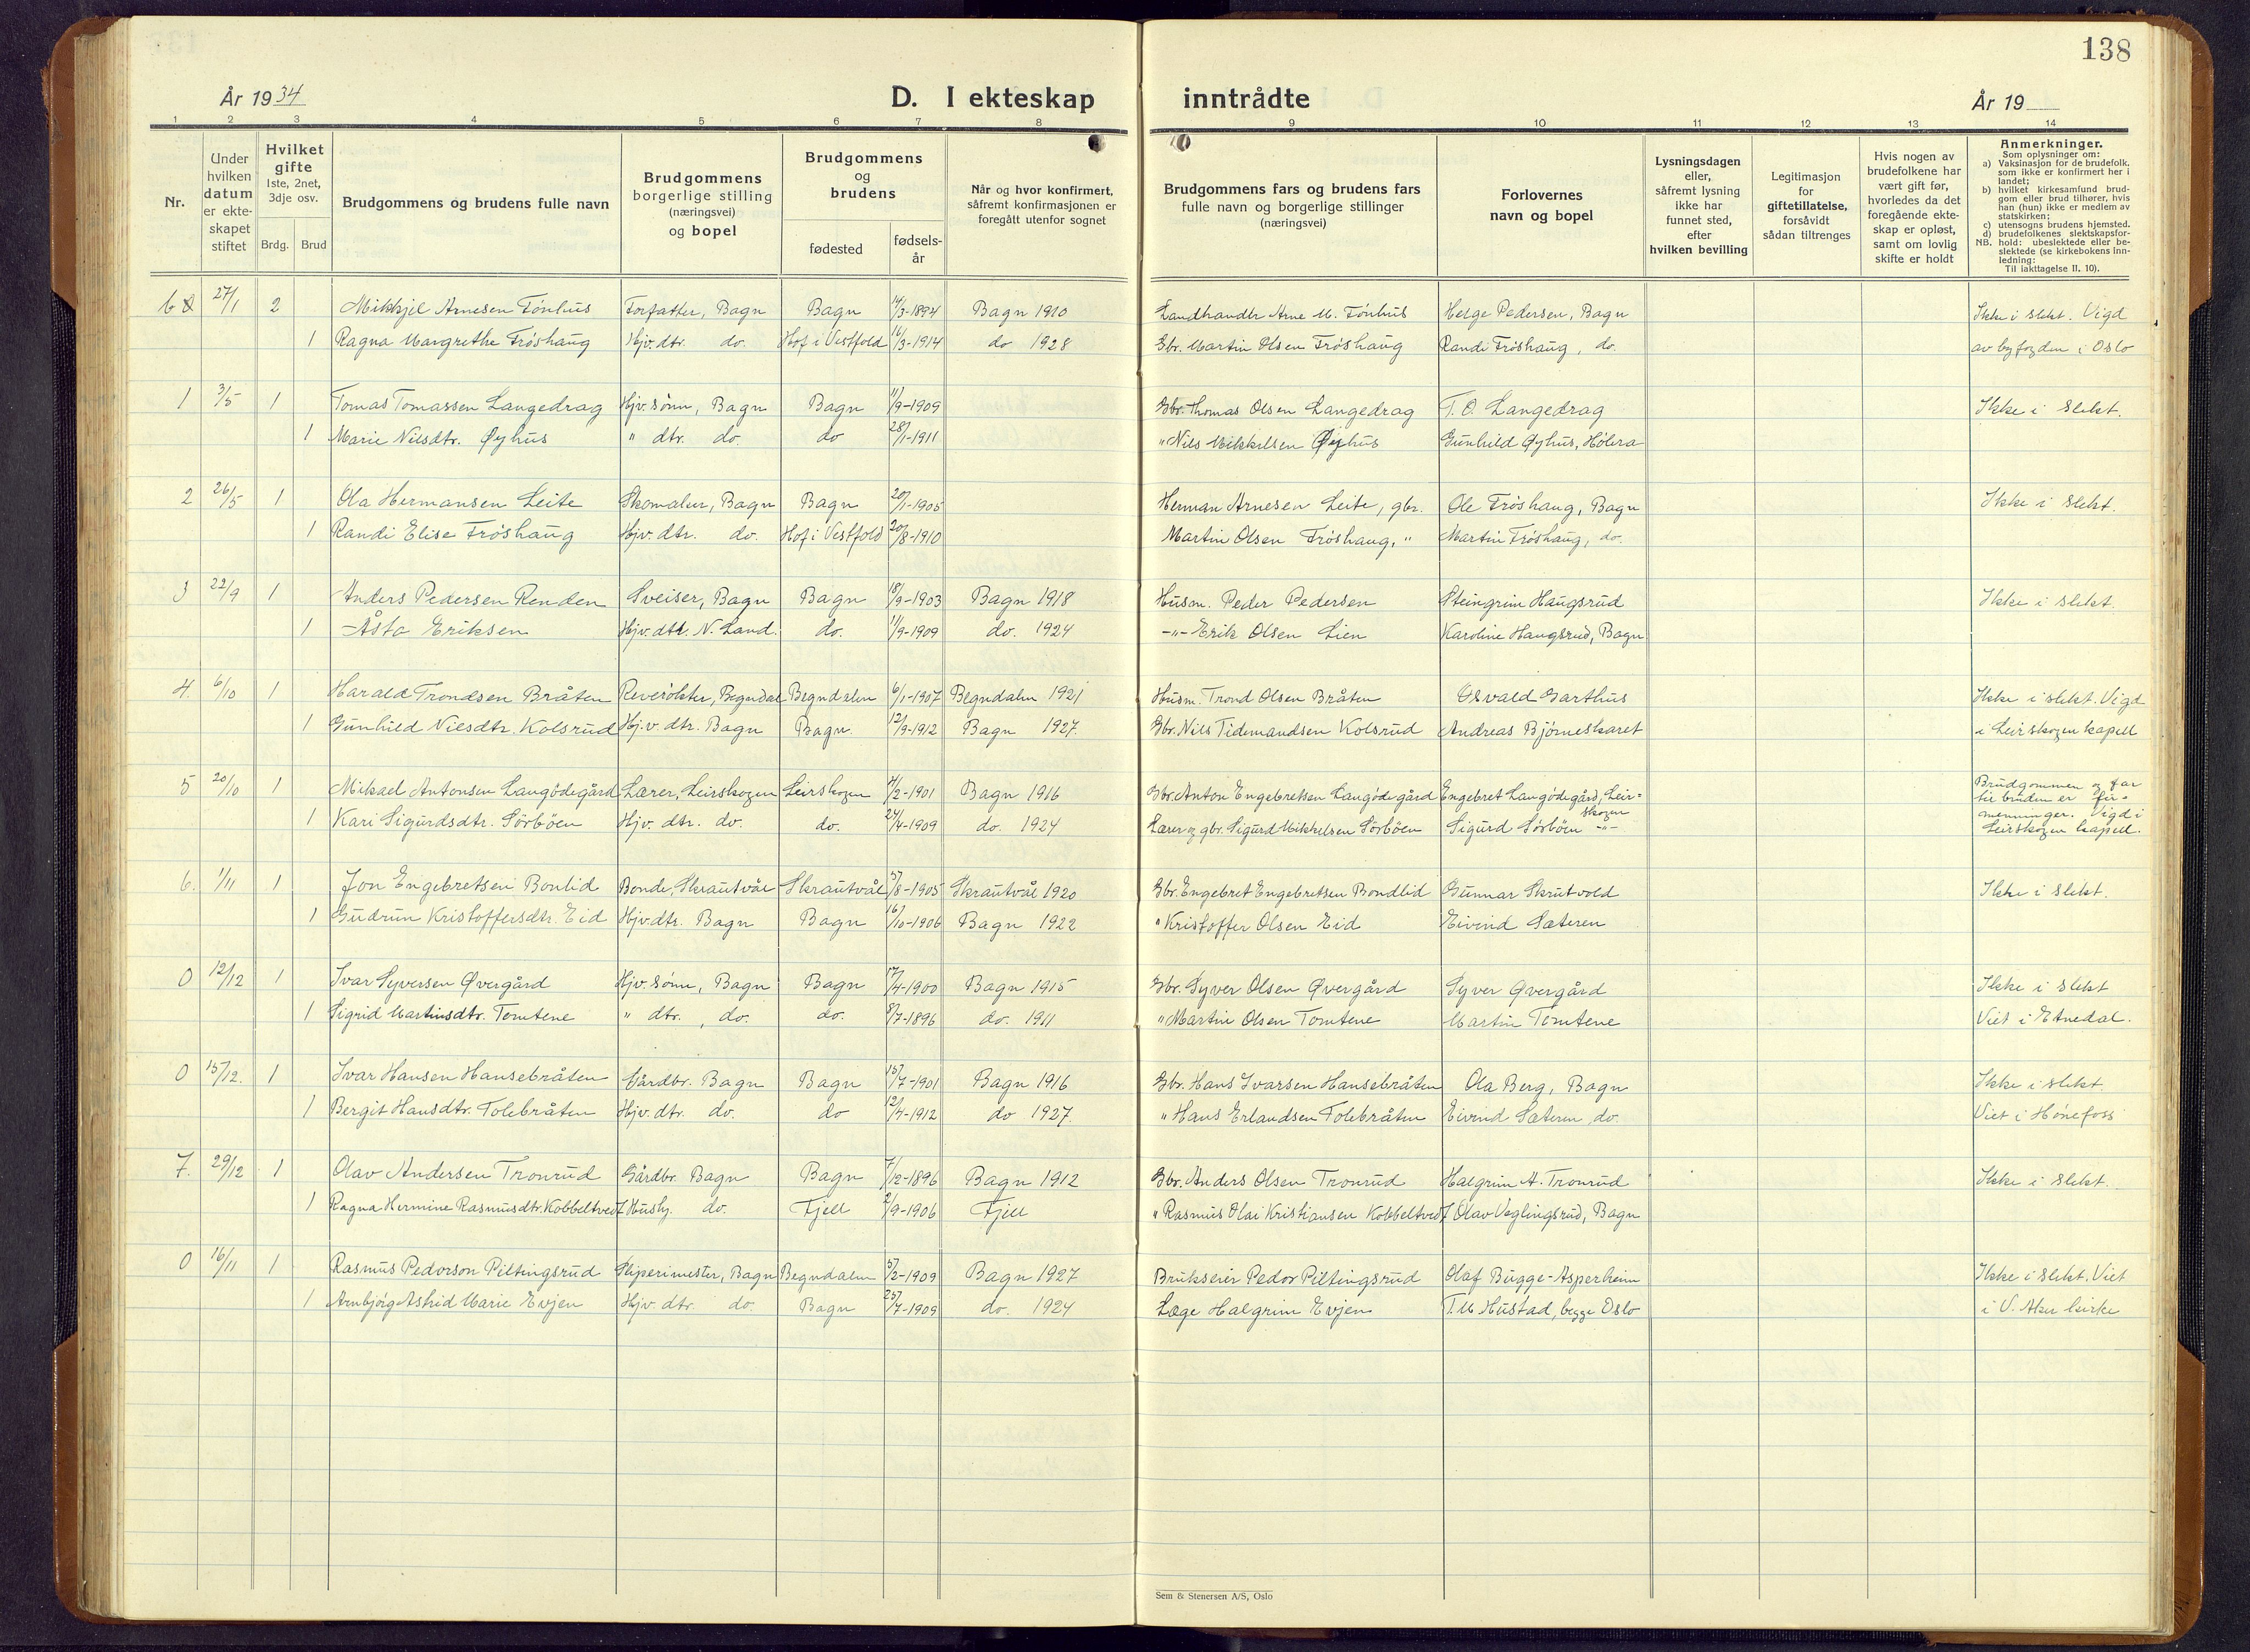 138
År 1934
D. I ekteskap inntrådte
År 19
1 2 3 4 5 6 7 8 9 10 11 12 13 14
Nr.
Under hvilken datum er ekte-skapet stiftet
Hvilket gifte 1ste, 2net, 3dje osv.
Brdg. Brud
Brudgommens og brudens fulle navn
Brudgommens borgerlige stilling (næringsvei) og bopel
Brudgommens og brudens
fødested
fødsels-år
Når og hvor konfirmert, såfremt konfirmasjonen er foregått utenfor sognet
Brudgommens fars og brudens fars fulle navn og borgerlige stillinger (næringsvei)
Forlovernes navn og bopel
Lysningsdagen eller, såfremt lysning ikke har funnet sted, efter hvilken bevilling
Legitimasjon for giftetillatelse, forsåvidt sådan tiltrenges
Hvis nogen av brudefolkene har vært gift før, hvorledes da det foregående ekte-skap er opløst, samt om lovlig skifte er holdt
Anmerkninger.
Som oplysninger om:
a) Vaksinasjon for de brudefolk. som ikke er konfirmert her i landet;
b) hvilket kirkesamfund brud-gom eller brud tilhører, hvis han (hun) ikke er medlem av statskirken;
c) utensogns brudens hjemsted.
d) brudefolkenes slektskapsfor-hold: ubeslektede eller be-slektede (se kirkebokens inn-ledning:
NB.
Til iakttagelse II. 10).
27/1 2 Mikkjel Arnesen Fönhus Forfatter, Bagn Bagn 14/3-1894 Bagn 1910 Landhandlr Arne M. Fönhus Helge Pedersen, Bagn Ikke i slekt. Vigd
1 Ragna Margrethe Fröshaug Hjv. dtr. do. Hof i Vestfold 16/3-1914 do 1928 Gbr. Martin Olsen Fröshaug Randi Fröshaug, do. av byfogden i Oslo
1 3/5 1 Tomas Tomassen Langedrag Hjv. sönn, Bagn Bagn 11/9-1909 Gbr. Thomas Olsen Langedrag T. O. Langedrag Ikke i slekt.
1 Marie Nilsdtr. Øyhus " dtr. do. do 28/1-1911 " Nils Mikkelsen Øyhus Gunhild Øyhus, Hölera
2 26/5 1 Ola Hermansen Leite Skomaker, Bagn Bagn 20/1-1905 Herman Arnesen Leite, gbr. Ole Fröshaug, Bagn Ikke i slekt.
1 Randi Elise Fröshaug Hjv. dtr. do. Hof i Vestfold 20/8-1910 Martin Olsen Fröshaug, " Martin Fröshaug, do.
3 22/9 1 Anders Pedersen Renden Sveiser, Bagn Bagn 18/9-1903 Bagn 1918 Husm. Peder Pedersen Steingrim Haugsrud Ikke i slekt.
1 Åsta Eriksen Hjv. dtr. N. Land. do. 11/9-1909 do. 1924 -"- Erik Olsen Lien Karoline Haugsrud, Bagn
4. 6/10 1 Harald Trondsen Bråten Reverökter, Begndal Begndalen 6/1-1907 Begndalen 1921 Husm. Trond Olsen Bråten Osvald Garthus Ikke i slekt. Vigd
1 Gunhild Nilsdtr. Kolsrud Hjv. dtr. Bagn Bagn. 12/9-1912 Bagn 1927. Gbr. Nils Tidemandsen Kolsrud Andreas Björneskaret i Leirskogen kapell
5 20/10 1 Mikael Antonsen Langödegård Lærer, Leirskogen Leirskogen 4/2-1901 Bagn 1916 Gbr. Anton Engebretsen Langödegård Engebret Langödegård, Leir=skogen Brudgommen og far
1 Kari Sigurdsdtr. Sörböen Hjv. dtr. do. do. 24/4-1909 do. 1924 Lærer og gbr. Sigurd Mikkelsen Sörböen Sigurd Sörböen -"- til bruden er fir-menninger. Vigd i Leirskogen kapell.
6. 1/11 1 Jon Engebretsen Bonlid Bonde, Skrautvål Skrautvål 5/8-1905 Skrautvål 1920 Gbr. Engebret Engebretsen Bondlid Gunnar Skrutvold Ikke i slekt.
1 Gudrun Kristoffersdtr. Eid Hjv. dtr. Bagn Bagn 16/10-1906 Bagn 1922 " Kristoffer Olsen Eid Eivind Sæteren
0 12/12 1 Ivar Syversen Øvergård Hjv. sönn, Bagn Bagn 17/4-1900 Bagn 1915 Gbr. Syver Olsen Øvergård Syver Øvergård Ikke i slekt
1 Sigrid Martinsdtr. Tomtene " dtr., do. do. 8/7-1896 do. 1911 " Martin Olsen Tomtene Martin Tomtene Viet i Etnedal.
0 15/12. 1 Ivar Hansen Hansebråten Gårdbr. Bagn Bagn 15/7-1901 Bagn 1916 Gbr. Hans Ivarsen Hansebråten Ola Berg, Bagn Ikke i slekt.
1 Bergit Hansdtr. Tolebråten Hjv. dtr. do. do 12/4-1912 do 1927. " Hans Erlandsen Tolebråten Eivind Sæteren, do. Viet i Hönefoss
7. 29/12 1 Olav Andersen Tronrud Gårdbr. Bagn Bagn 7/12-1896 Bagn 1912 Gbr. Anders Olsen Tronrud Halgrim A. Tronrud Ikke i slekt.
1 Ragna Hermine Rasmusdtr. Kobbeltvedt Hushj. do. Fjell 2/9-1906 Fjell " Rasmus Olai Kristiansen Kobbeltvedt Olav Veglingsrud, Bagn
0 16/11 1 Rasmus Pedorson Piltingsrud Sliperimester, Bagn Begndalen 5/2-1909 Bagn 1927 Brukseier Pedor Piltingsrud Olaf Bugge-Asperheim Ikke i slekt. Viet
1 Arnbjörg Astrid Marie Evjen Hjv. dtr. do. Bagn 25/7-1909 do. 1924 Læge Halgrim Evjen T. M Hustad, begge Oslo i V. Aker kirke
Sem & Stenersen A/S, Oslo